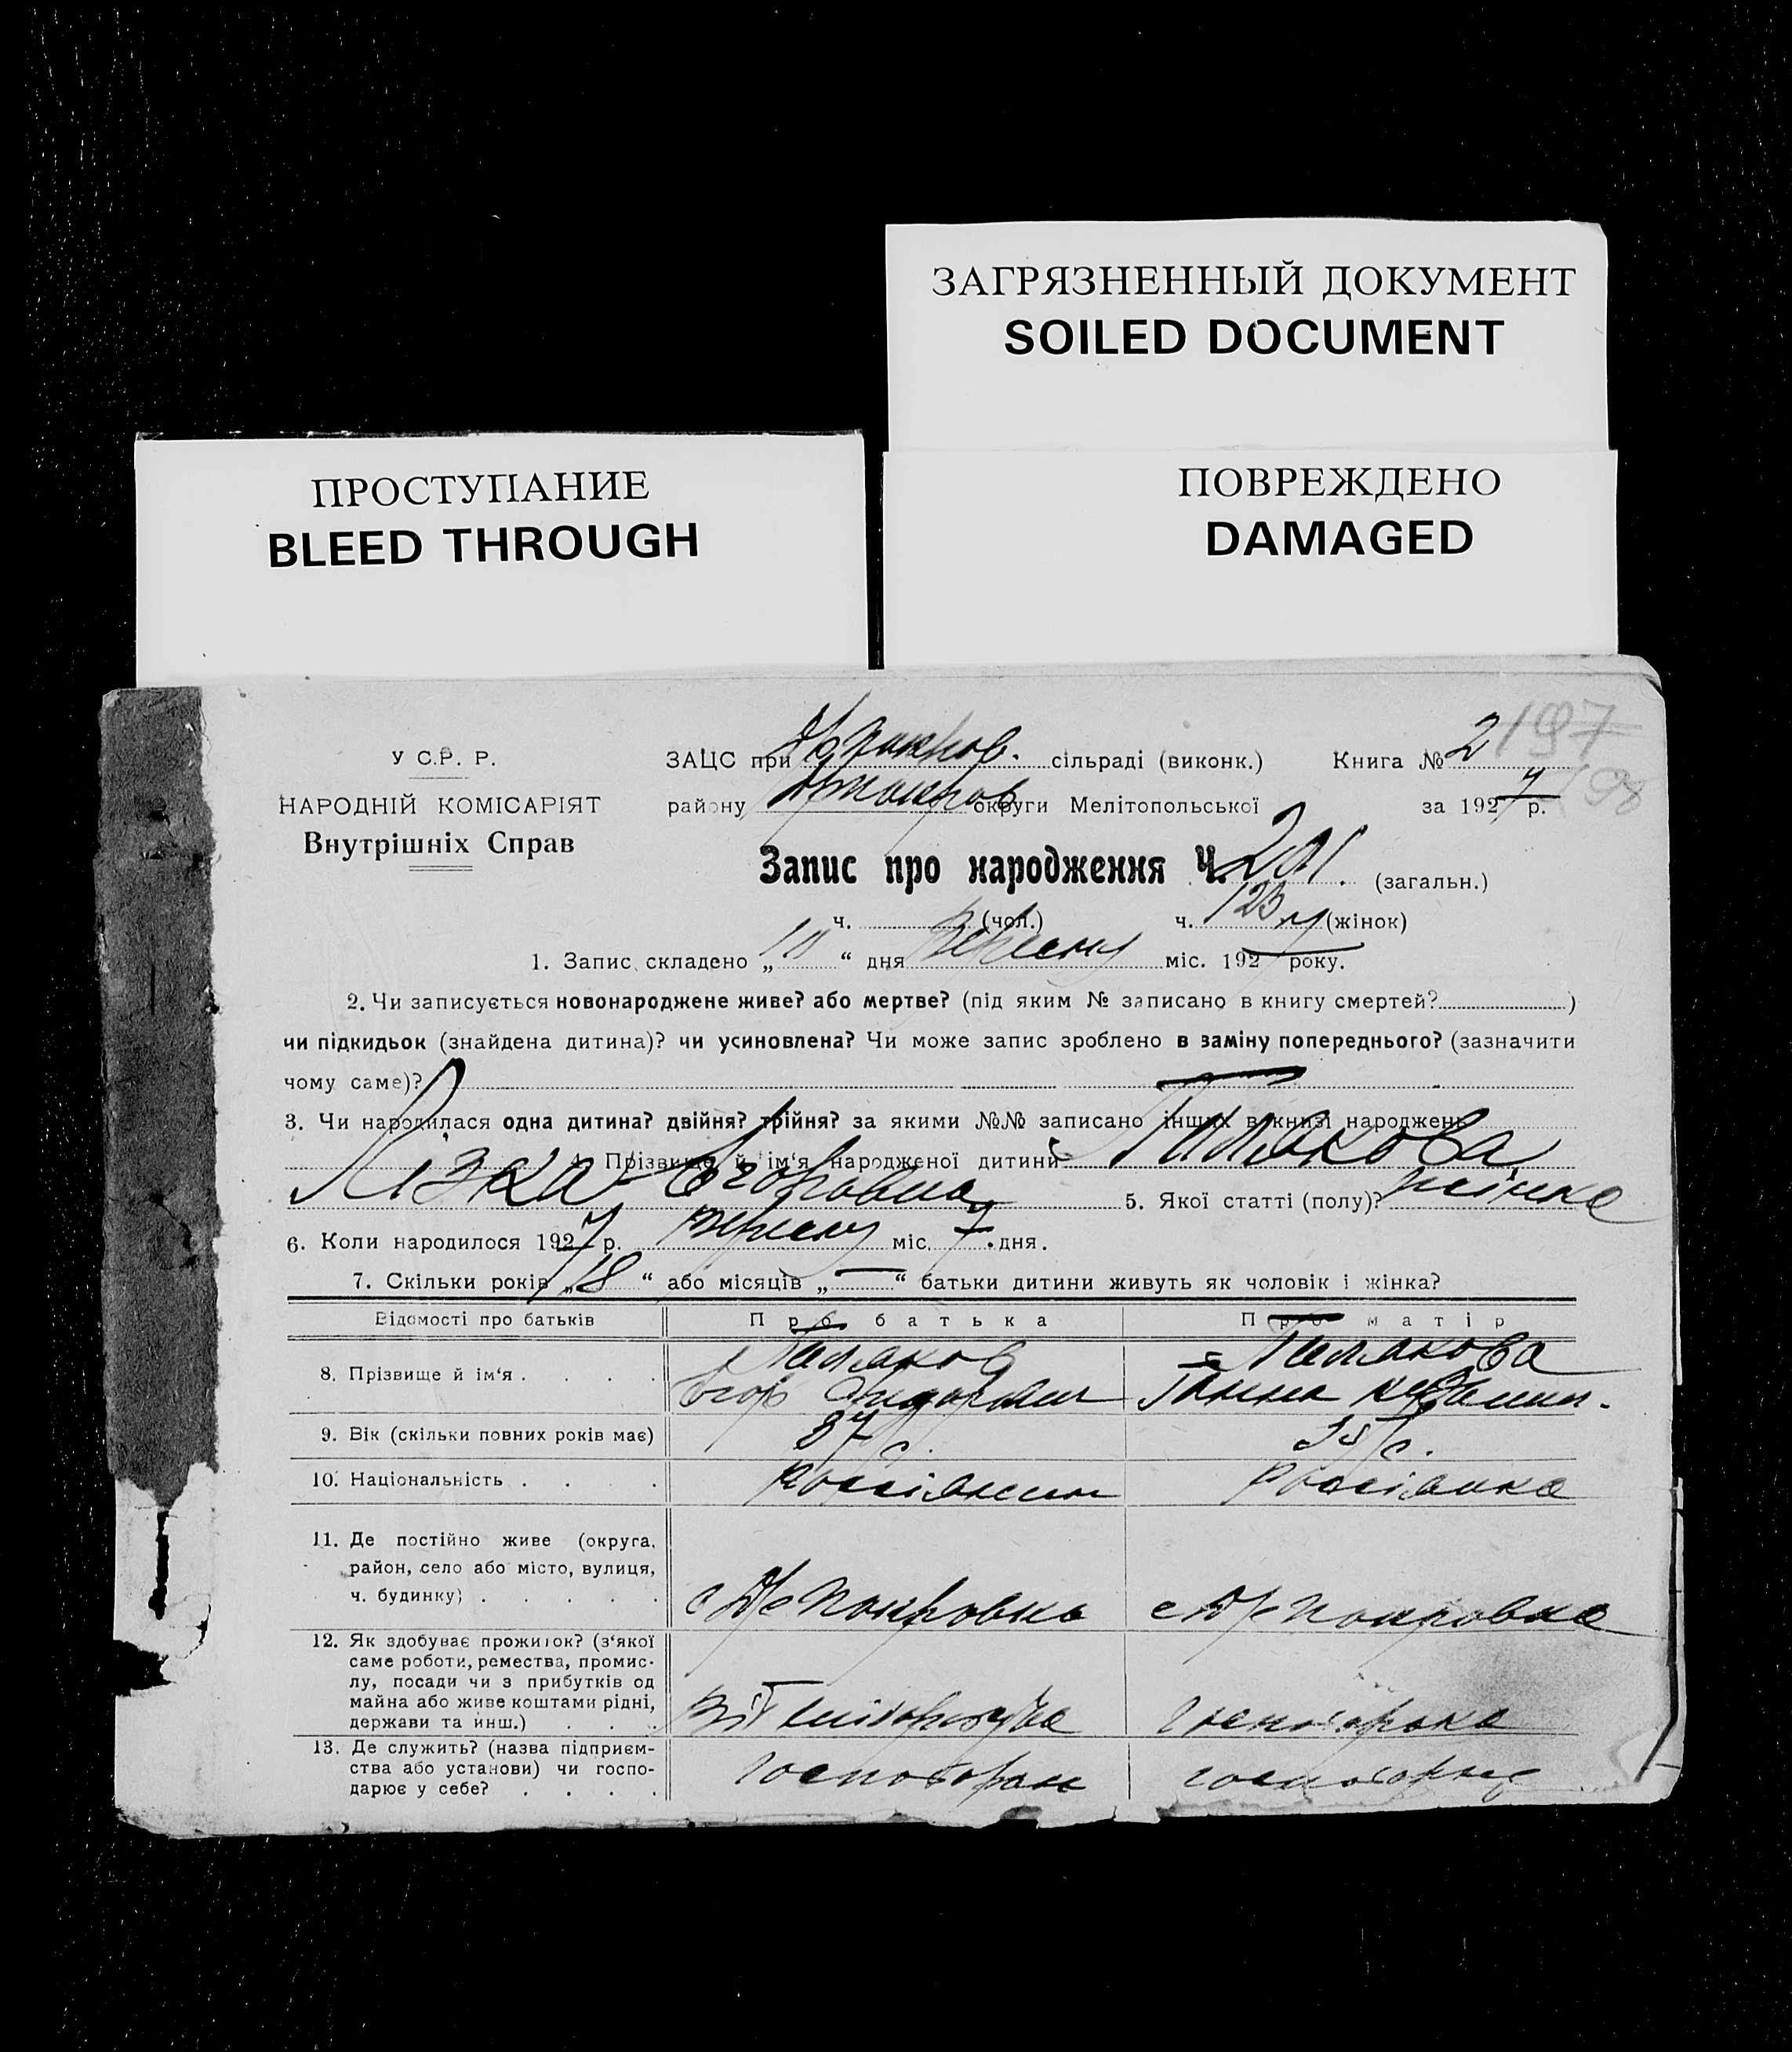 ЗАГРЯЗНЕННЫЙ ДОКУМЕНТ
SOILED DOCUMENT
ПРОСТУПАНИЕ
BLEED THROUGH
ПОВРЕЖДЕНО
DAMAGED
У С.Р. Р.
НАРОДНІЙ КОМІСАРІЯТ
Внутрішніх Справ
ЗАЦС при сільраді (виконк.) Книга № 2
197
району округи Мелітопольської за 1927 р.
198
Запис про народження Ч. 201. (загальн.)
ч. (чол.) ч. 123 (жінок)
1. Запис складено „10“ дня Вересня міс. 1927 року.
2. Чи записується новонароджене живе? або мертве? (під яким № записано в книгу смертей? )
чи підкидьок (знайдена дитина)? чи усиновлена? Чи може запис зроблено в заміну попереднього? (зазначити
чому саме)?
3. Чи народилася одна дитина? двійня? трійня? за якими №№ записано інших в книзі народжень
4. Прізвище й ім'я народженої дитини
Егоровна 5. Якої статті (полу)? жінка
6. Коли народилося 1927 р. вересня міс. 7 дня.
7. Скільки років „18“ або місяців „—“ батьки дитини живуть як чоловік і жінка?
Відомості про батьків Про батька Про матір
8. Прізвище й ім'я . . . .
Егор Ганна
9. Вік (скільки повних років має) 37 р. 35 р.
10. Національність . . . . россіянин россіянка
11. Де постійно живе (округа,
район, село або місто, вулиця,
ч. будинку) . . . . . Покровка Покровка
12. Як здобуває прожиток? (з'якої
саме роботи, ремества, промис-
лу, посади чи з прибутків од
майна або живе коштами рідні,
держави та инш.) . . . Від хліборобства
13. Де служить? (назва підприєм-
ства або установи) чи госпо-
дарює у себе? . . . .